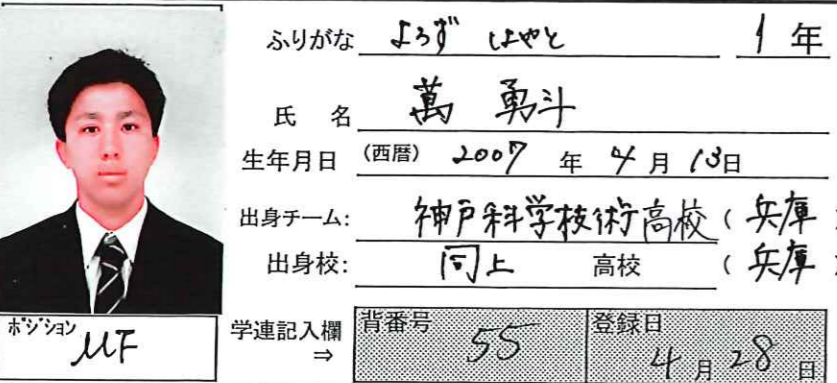 ふりがな よろず はやと 1年
氏 名 萬 勇斗
生年月日 (西暦) 2007 年 4 月 13日
出身チーム: 神戸科学技術高校 ( 兵庫
出身校: 同上 高校 ( 兵庫
ポジション MF
学連記入欄 ⇒ 背番号 55 登録日 4 月 28 日